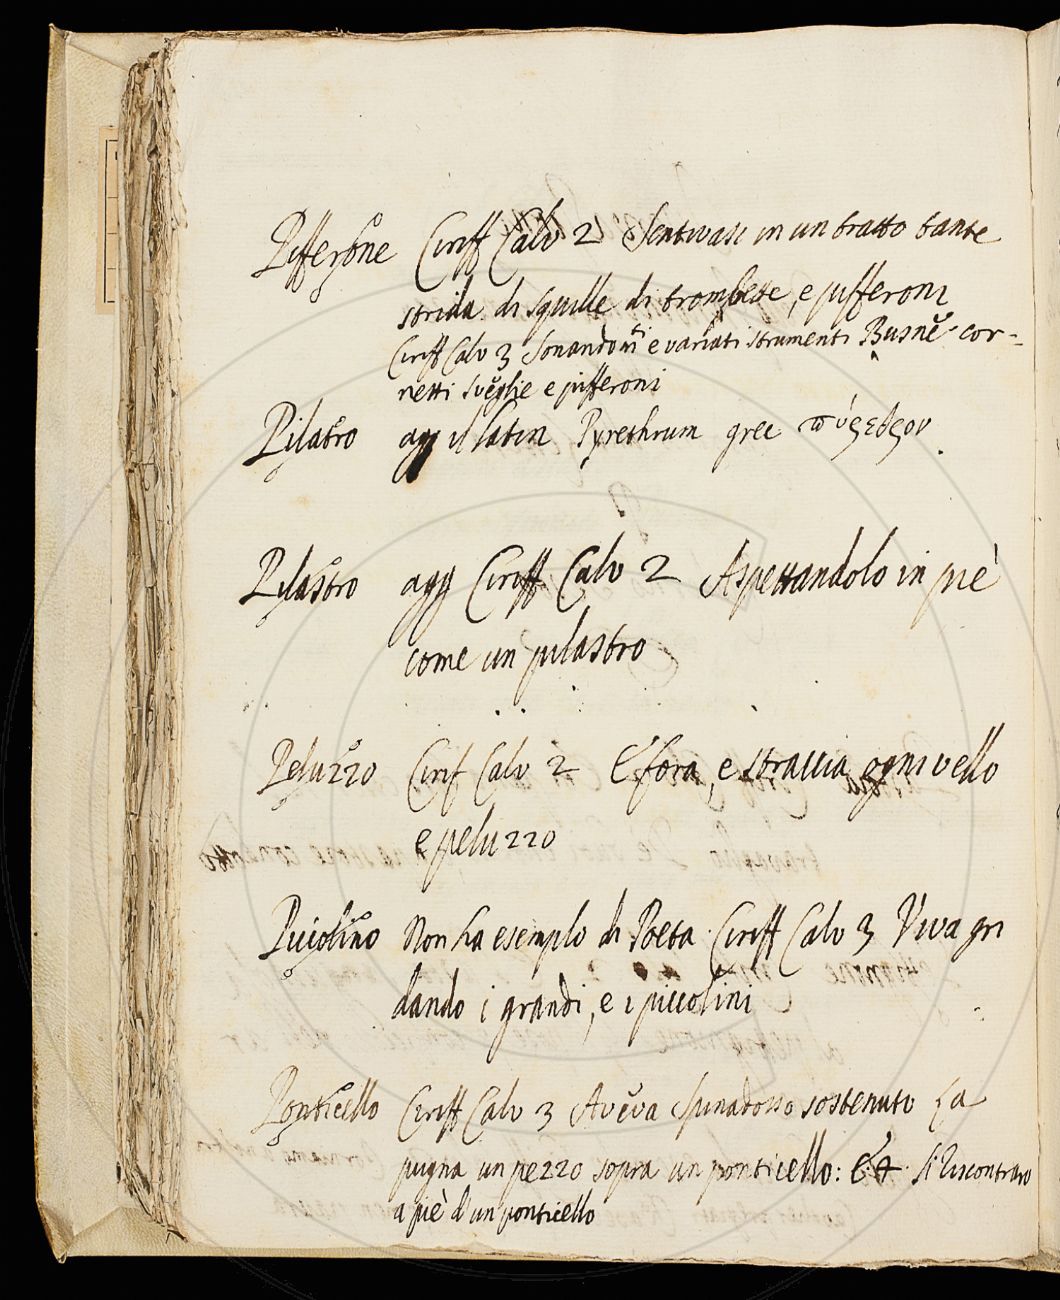 Pifferone Ciriff Calv 2 Sentivasi in un tratto tante
strida di squille di trombette, e pifferoni
Ciriff Calv 3 Sonando vti e variati strumenti Busne cor-
netti sveglie e pifferoni
Pilatro agg il latin Pyrethrum grec πύρεθρον.
Pilastro agg Ciriff Calv 2 Aspettandolo in piè
come un pilastro
Peluzzo Cirif Calv 2 E fora, e straccia ogni vello
e peluzzo
Piccolino Non ha esemplo di Poeta. Ciriff Calv 3 Viva gri
dando i grandi, e i piccolini
Ponticello Ciriff Calv 3 Aveva Spinadosso sostenuto La
pugna un pezzo sopra un ponticello: Et. si riscontraro
a piè d'un ponticello